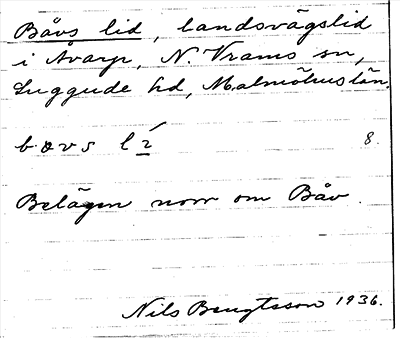 Båvs lid, landsvägslid
i Åvarp, N. Vrams sn,
Luggude hd, Malmöhus län.
bøvs lí 8.
Belägen norr om Båv.
Nils Bengtsson 1936.